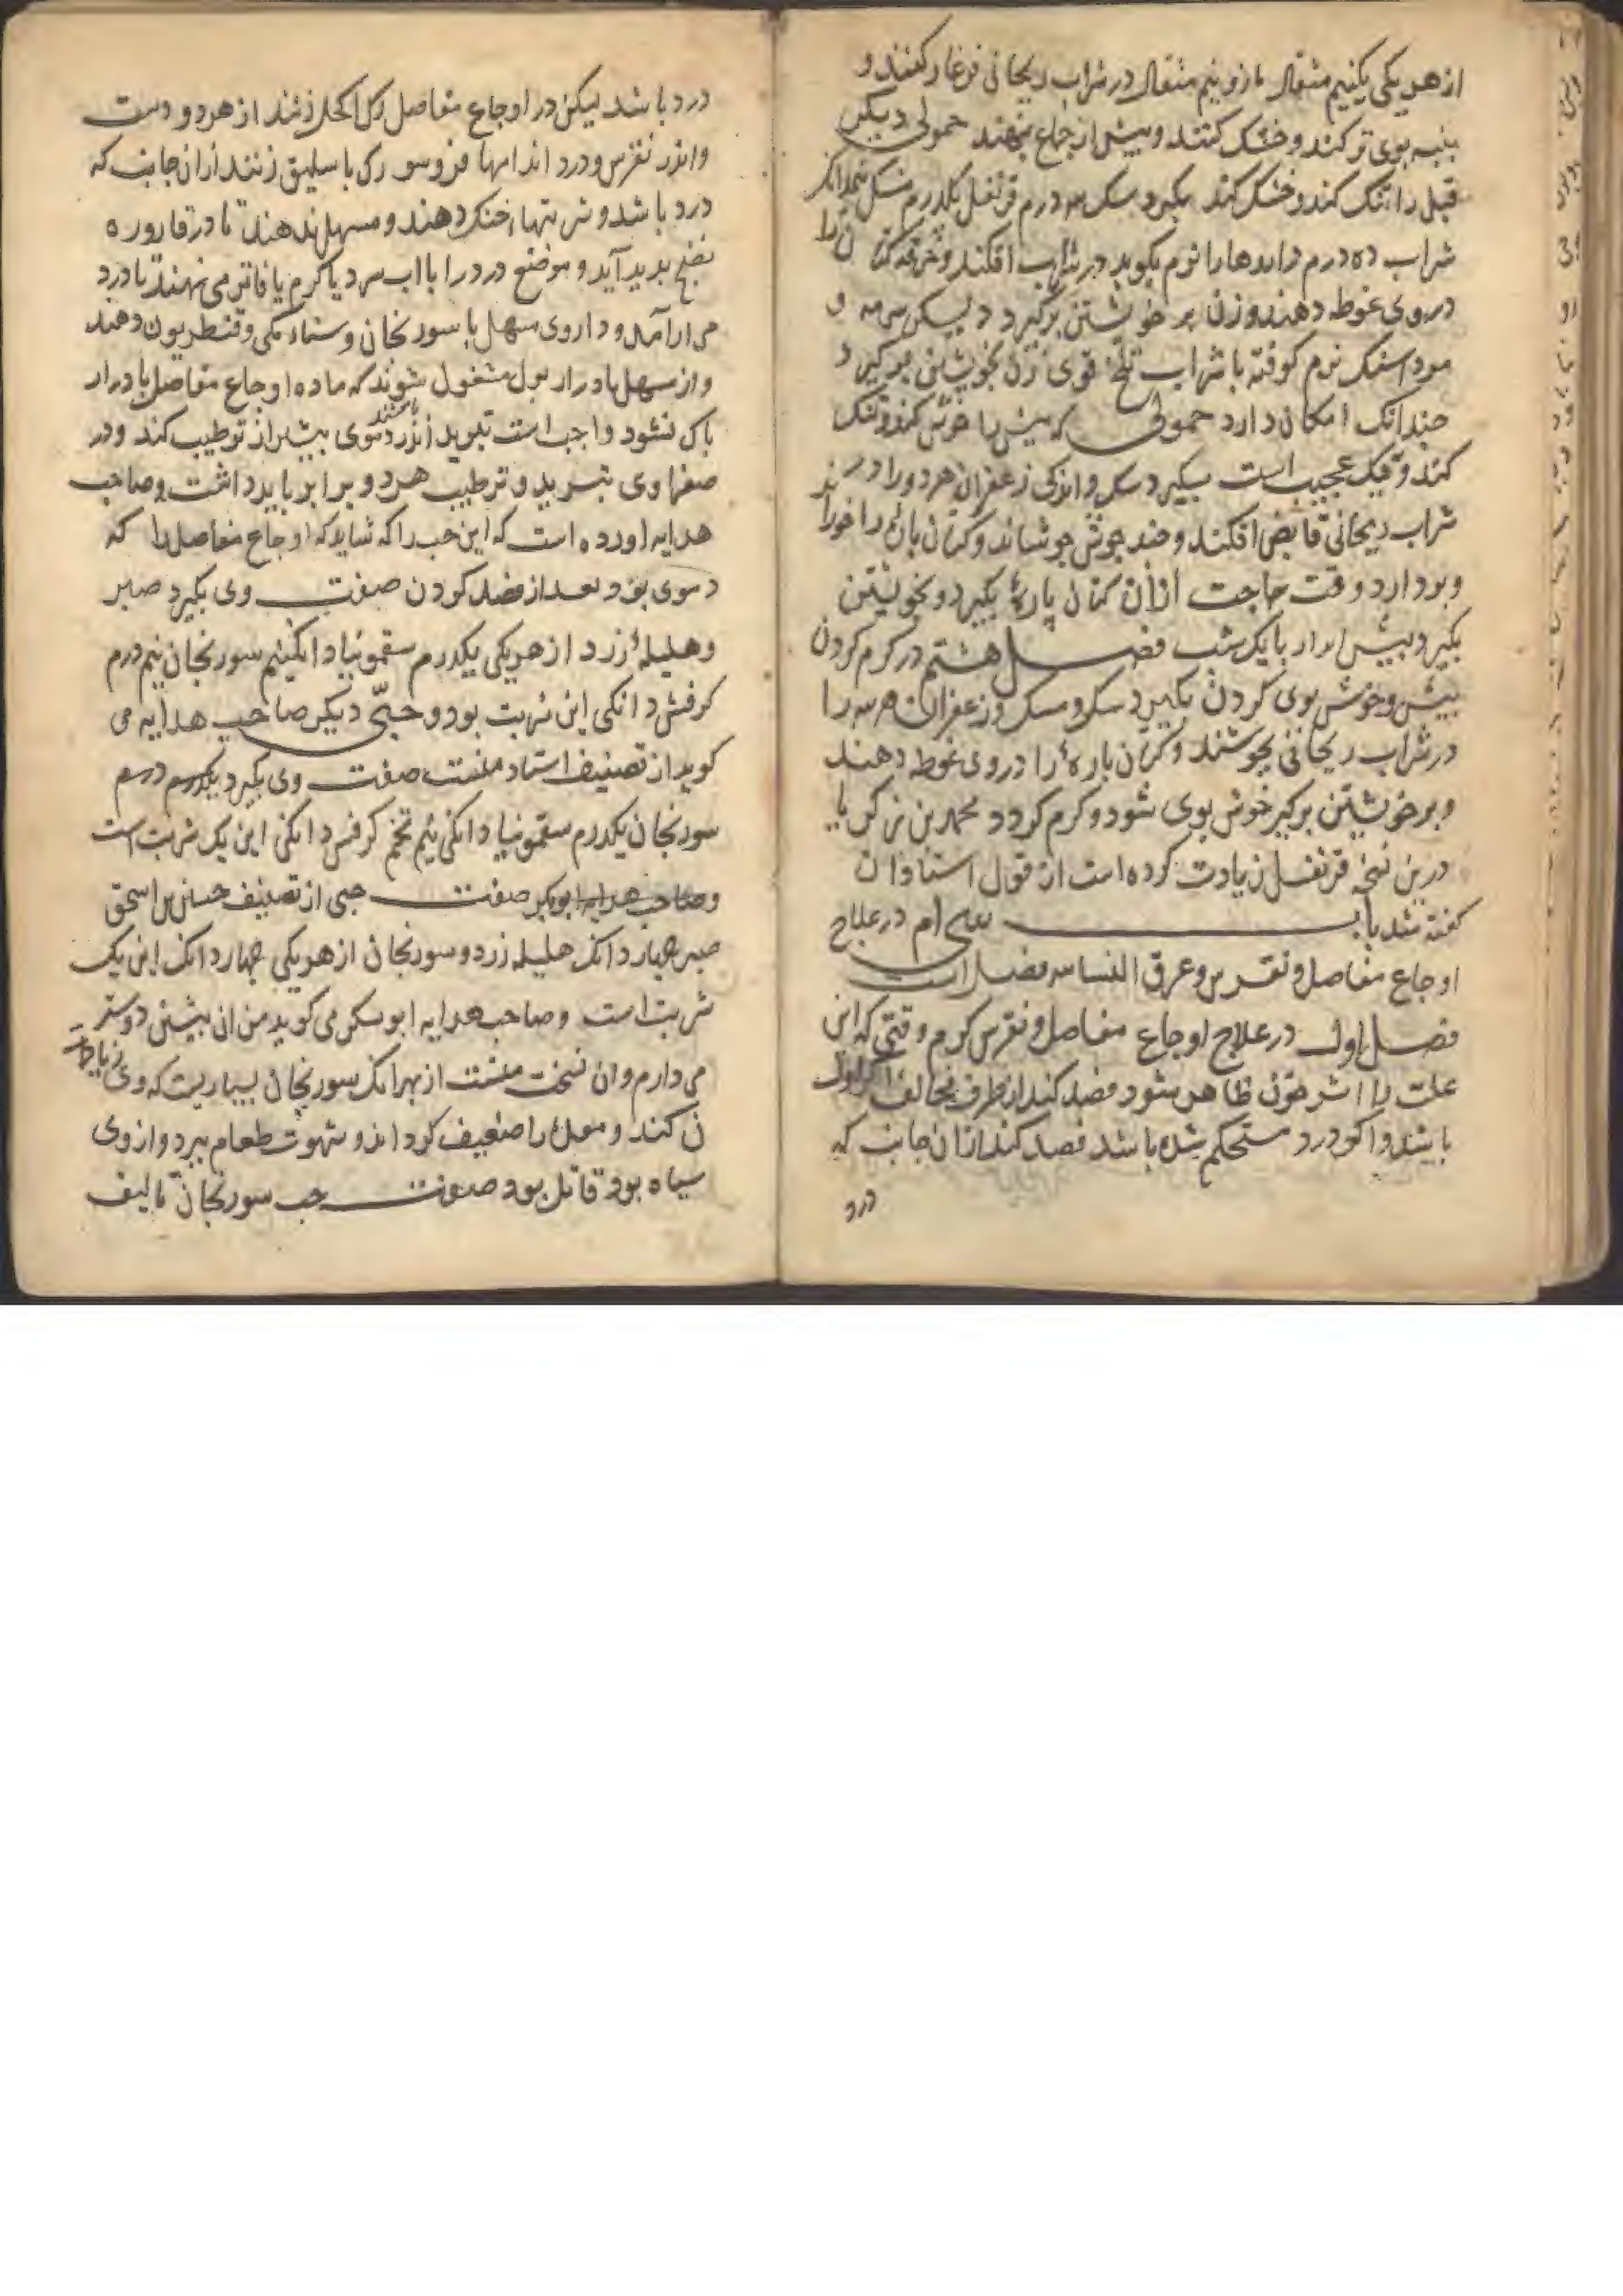 از هر یکی یکنیم مثقال مازو نیم مثقال در شراب ریحانی فرغار کنند و
پنبه بوی تر کند و خشک کنند و پیش از جماع بنهند حمولی دیکر
قبل را تنک کند و خشک کند بکیرد سک درم قرنفل یکدرم
شراب ده درم داروها را نرم بکوبد در شراب افکند و خرقه کتان
در وی غوطه دهند و زن بر خویشتن برکیرد دیکر سرمه و
مرداسنک نرم کوفته با شراب تلخ قوی زن بخویشتن برکیرد
چندانک امکان دارد حمولی که پیش را خوش کند و تنک
کند و نیک عجیب است بکیرد سک و اندکی زعفران هر دو را در
شراب ریحانی قابض افکند و چند جوش جوشاند و کتان پاره را
و بردارد وقت حاجت ازان کتان پارهٔ بکیرد و بخویشتن
بکیرد پیش از یک شب فصل هشتم در کرم کردن
پیش و خوش بوی کردن بکیرد سک و مسک و زعفران هر سه را
در شراب ریحانی بجوشند و کتان پارهٔ را در وی غوطه دهند
و بر خویشتن برکیرد خوش بوی شود و کرم کردد محمد بن زکریا
درین نسخه قرنفل زیادت کرده است از قول استادان
کفته شد باب در علاج
اوجاع مفاصل و نقرس و عرق النسا سه فصل است
فصل اول در علاج اوجاع مفاصل و نقرس کرم وقتی که این
علت را اثر خون ظاهر شود فصد کند از طرف مخالف اکر اول
باشد و اکر درد مستحکم شده باشد فصد کند ازان جانب که
درد
درد باشد لیکن در اوجاع مفاصل رک اکحل زنند از هر دو دست
و اندر نقرس و درد اندامها فروسو رک باسلیق زنند ازان جانب که
درد باشد و شربتها خنک دهند و مسهل ندهند تا در قاروره
نضج بدید آید و موضع درد را با اب سرد یا کرم یا فاتر می نهند تا درد
می ارامد و داروی مسهل با سورنجان و سناء مکی و قنطریون دهند
و از مسهل بادرار بول مشغول شوند که ماده اوجاع مفاصل بادرار
پاک نشود واجب است تبرید اندر دموی بیشتر از ترطیب کند و در
صفراوی تبرید و ترطیب هر دو برابر باید داشت و صاحب
هدایه اورده است که این حب را که شاید که اوجاع مفاصل را که
دموی بود بعد از فصد کردن صفت وی بکیرد صبر
و هلیلهٔ زرد از هر یکی یکدرم سقمونیا دانکی نیم سورنجان نیم درم
کرفش دانکی این شربت بود و حبّی دیکر صاحب هدایه می
کوید از تصنیف استاد منست صفت وی بکیرد یکدرم درم
سورنجان یکدرم سقمونیا دانکی نیم تخم کرفس دانکی این یک شربت است
و صاحب هدایه ابوبکر صفت حبی از تصنیف حسنین بن اسحق
صبر چهار دانک هلیله زرد و سورنجان از هر یکی چهار دانک این یک
شربت است و صاحب هدایه ابوبکر می کوید من ان پیشین دوستر
می دارم و ان نسخت منست از بهر انک سورنجان بسیاریست که وی زیاد
ن کند و معدهٔ را ضعیف کرداند و شهوت طعام ببرد و از وی
سیاه بود قاتل بود صفت حب سورنجان تالیف